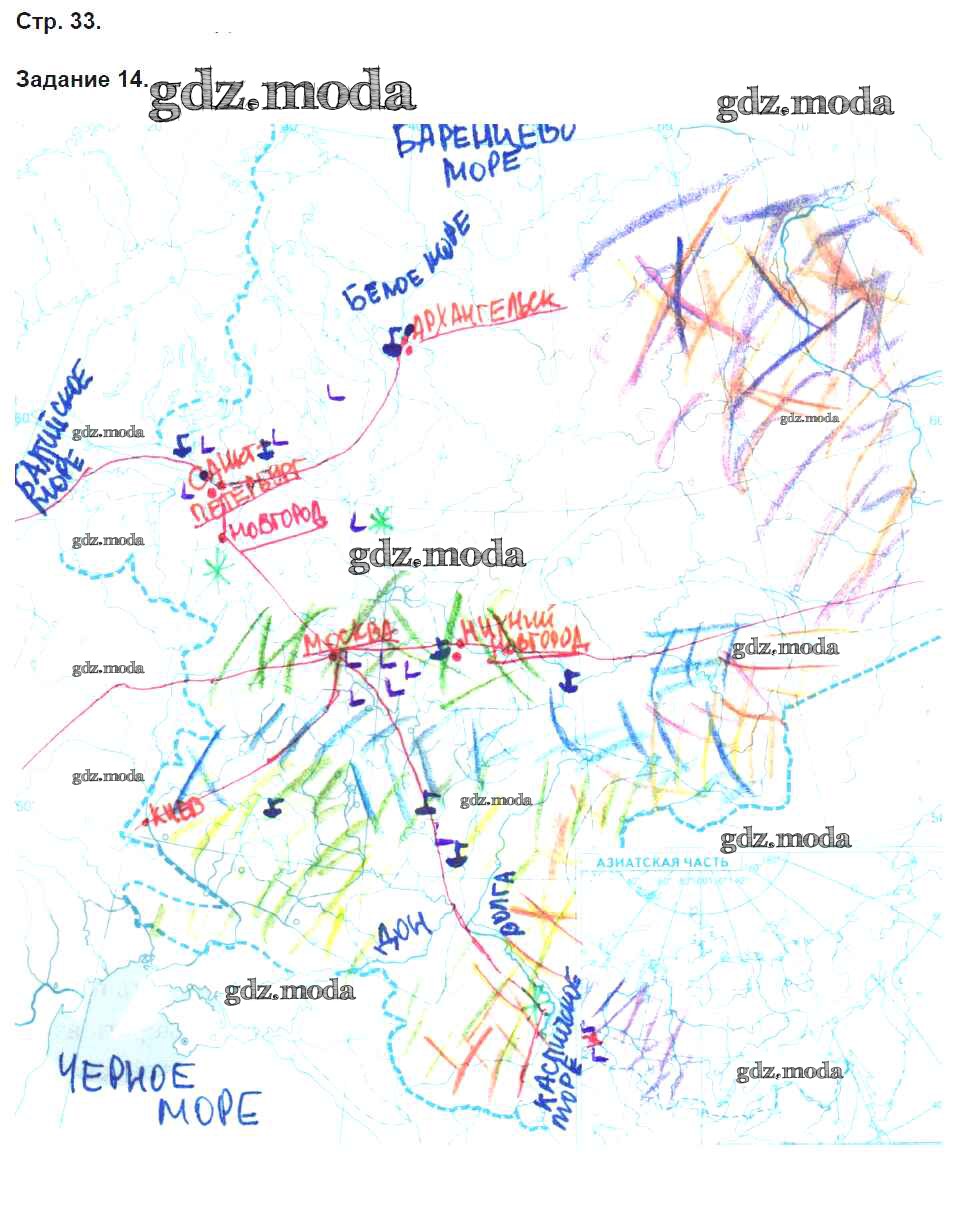 Стр. 33.
Задание 14.
gdz.moda
gdz.moda
БАРЕНЦЕВО
МОРЕ
БЕЛОЕ МОРЕ
АРХАНГЕЛЬСК
БАЛТИЙСКОЕ
МОРЕ
gdz.moda
gdz.moda
60
САНКТ-
ПЕТЕРБУРГ
НОВГОРОД
gdz.moda
gdz.moda
МОСКВА
НИЖНИЙ
НОВГОРОД
gdz.moda
gdz.moda
gdz.moda
КИЕВ
gdz.moda
gdz.moda
АЗИАТСКАЯ ЧАСТЬ
ДОН
ВОЛГА
gdz.moda
КАСПИЙСКОЕ
МОРЕ
gdz.moda
ЧЕРНОЕ
МОРЕ